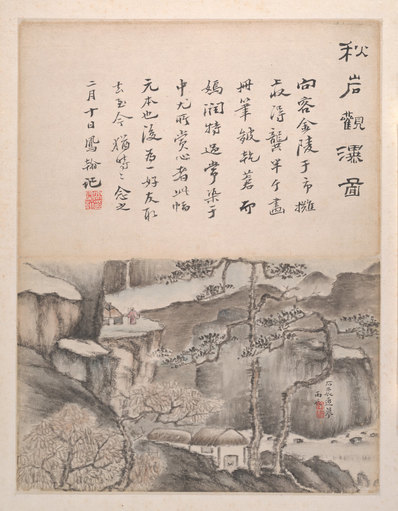 秋岩觀瀑圖
向客金陵于市攤
上收得龔半千畫
冊筆皴乾茗而
嫣潤特過常染于
中尤所賞心者此幅
元本也後為一好友取
去至今猶時〻念之
二月十日鳳翰記